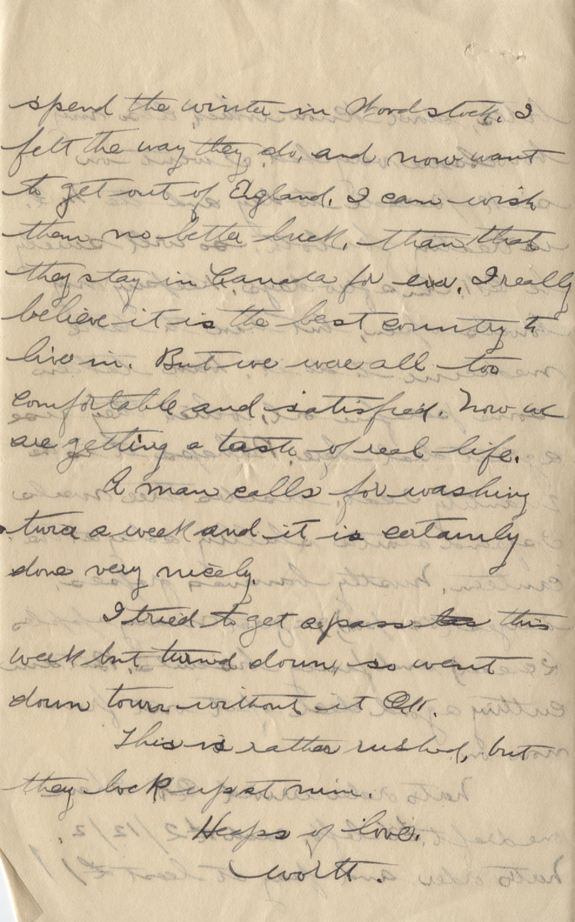 spend the winter in Woodstock. I
felt the way they do, and now want
to get out of England. I can wish
them no better luck, than that
they stay in Canada for ever. I really
believe it is the best country to
live in. But we were all too
comfortable and, satisfied. Now we
are getting a taste of real life.
A man calls for washing
twice a week and it is certainly
done very nicely.
I tried to get a pass this
week but turned down, so went
down town without it
This is rather rushed, but
they lock up at nine.
Heaps of love.
Worth.